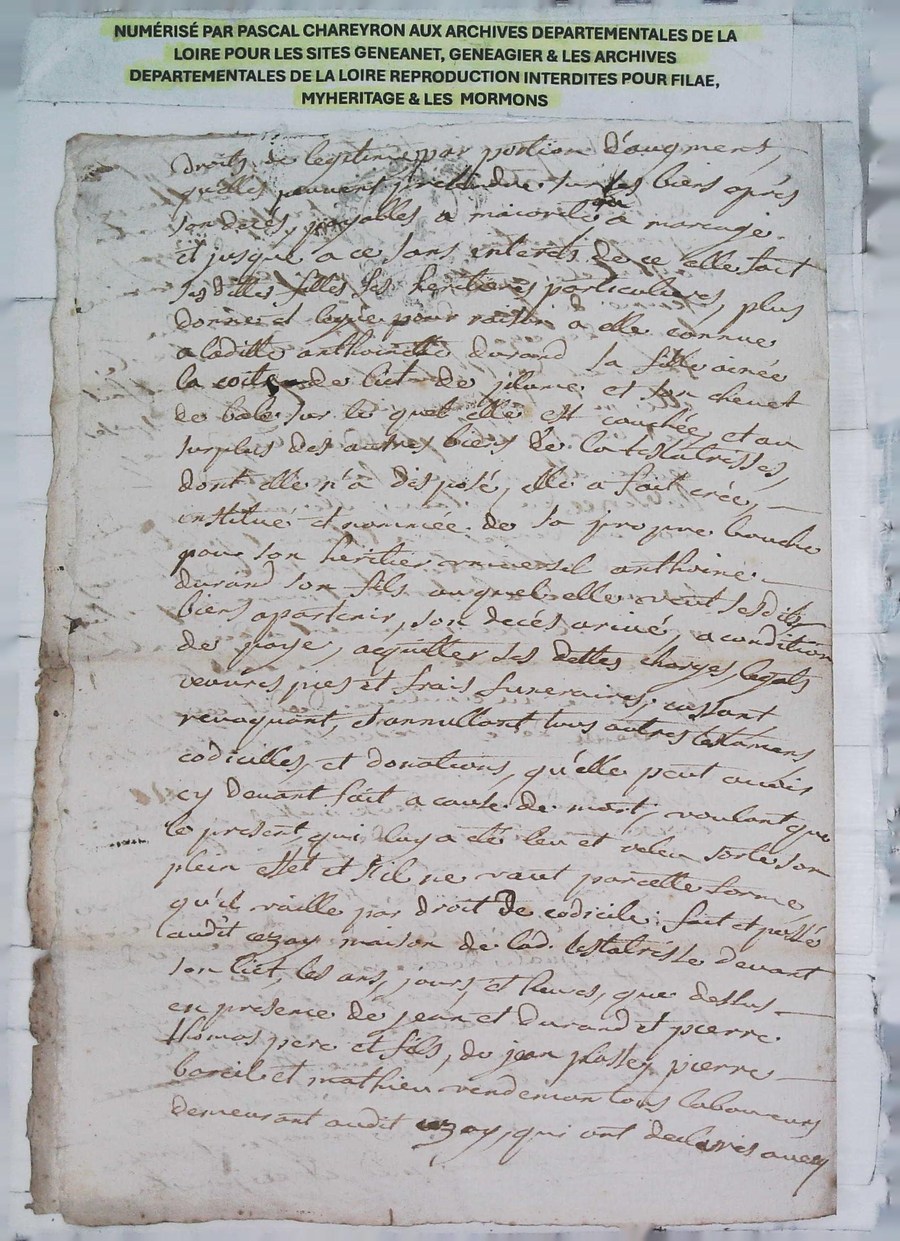 NUMÉRISÉ PAR PASCAL CHAREYRON AUX ARCHIVES DEPARTEMENTALES DE LA
LOIRE POUR LES SITES GENEANET, GENEAGIER & LES ARCHIVES
DEPARTEMENTALES DE LA LOIRE REPRODUCTION INTERDITES POUR FILAE,
MYHERITAGE & LES MORMONS
droits de legitime par portion d'augment,
qu'elles peuvent prettendre sur ses biens après
son decés, payables a majorité ou a mariage
et jusqu'a ce sans interets de ce elle fait
ses dittes filles ses heritieres particulieres, plus
donne et legue pour raison a elle connue
a laditte anthoinette durand sa fille ainée
la coitre de lict de plume et son chevet
de bale sur le quel elle est couchée, et au
surplus des autres biens de la testatresse,
dont elle n'a disposé, elle a fait crée,
institue et nommée de sa propre bouche
pour son heritier universel anthoine
durand son fils auquel elle veut sesdits
biens apartenir, son decés arivé, a condition
de paÿe, aquitter ses dettes charges legats
œuvres pies et frais funeraires, cassant
revoquant, et annullant tous autres testamens
codicilles, et donations, qu'elle peut avoir
cy devant fait a cause de mort, voulant que
le present, qui luy a eté leu et releu sorte son
plein effet et s'il ne vaut par celle forme
qu'il vaille par droit de codicile. fait et passé
audit cezay maison de lad. testatresse devant
son lict, les ans, jours, et heures, que dessus
en presence de jean et durand et pierre
thomas pere et fils, de jean plasse, pierre
bareil et mathieu vendeman tous laboureurs
demeurant audit cezay, qui ont declarés avec